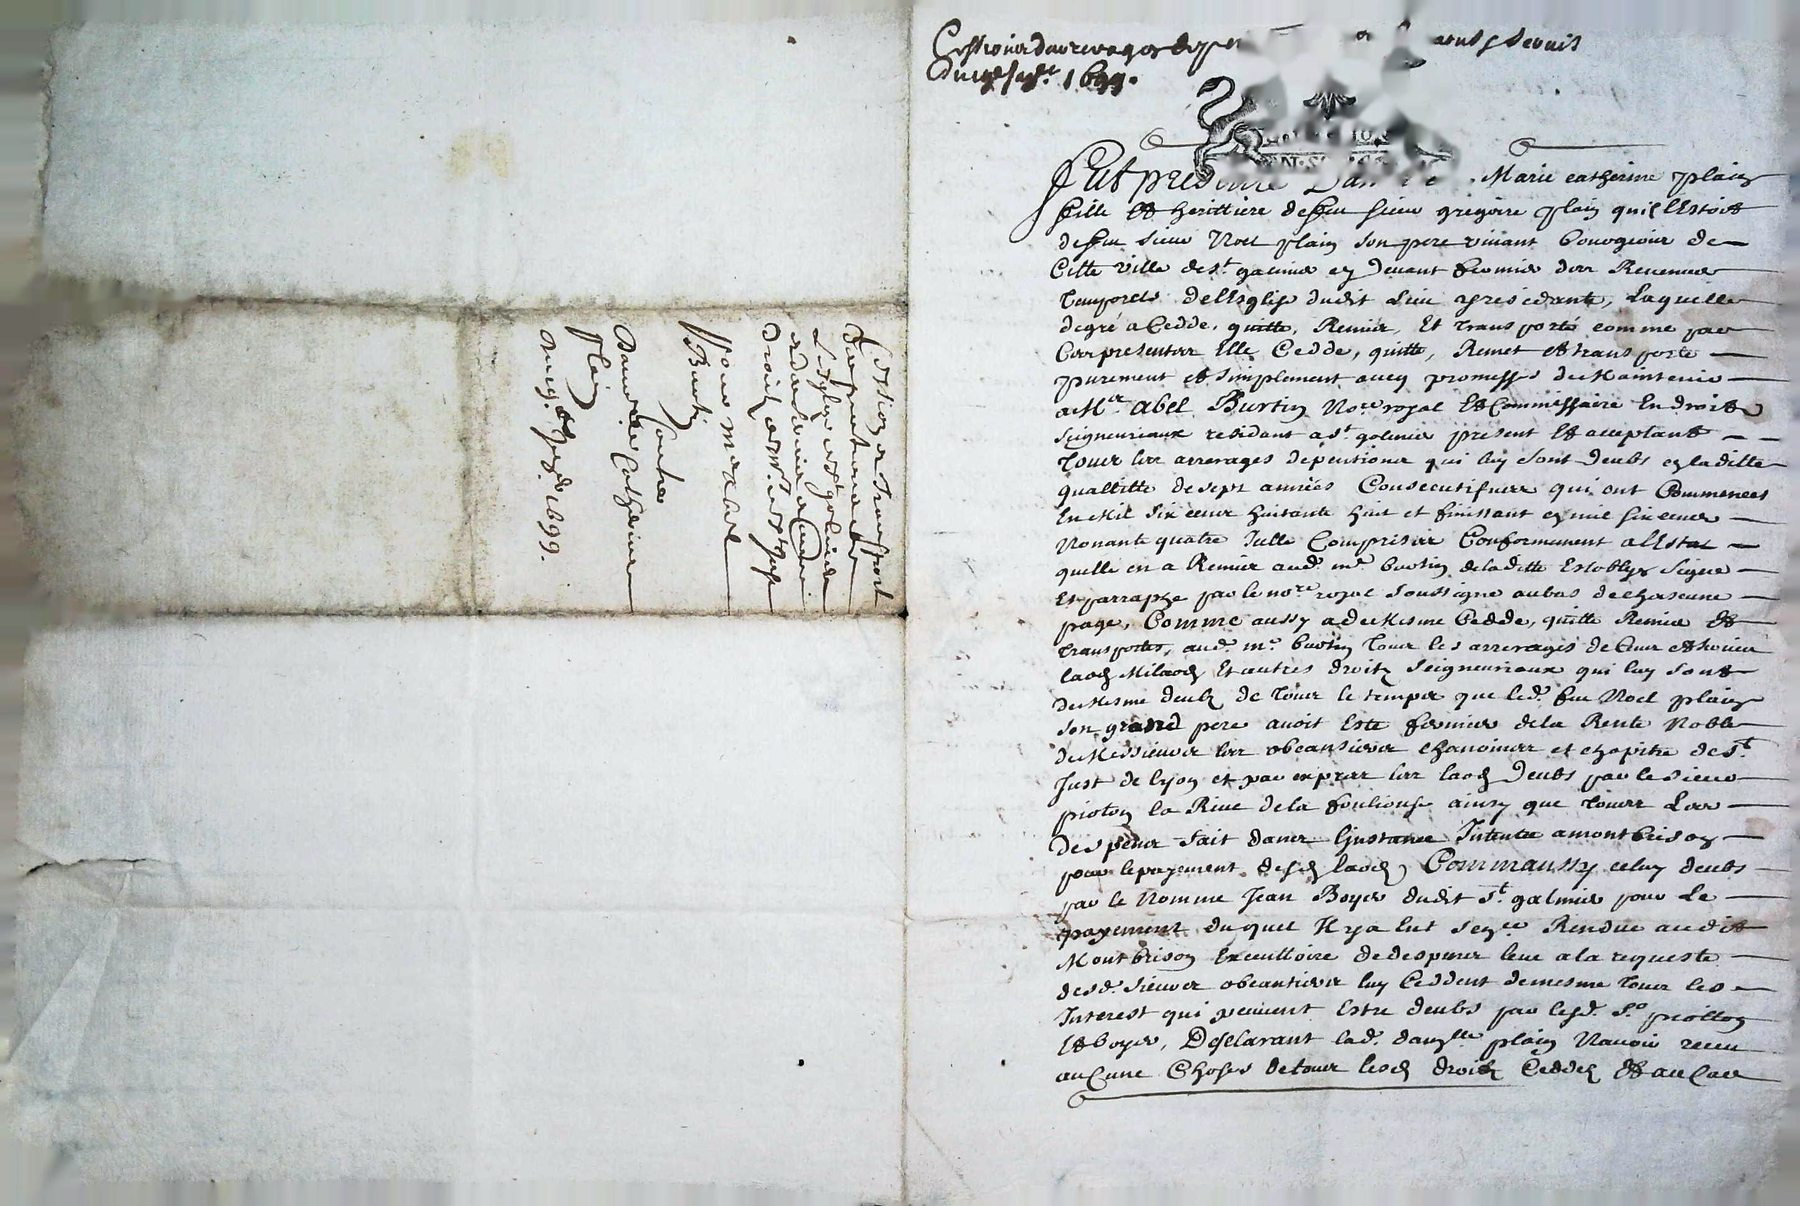 Cession d'arrerages de
du 1699.
Fut presente Marie catherine plain
fille et herittiere de feu sieur gregoire plain quil Estoit
de feu sieur Noel plain son pere vivant bourgeois de
Cette ville de st galmier et devant fermier des Revenus
Temporels de l'Esglise dudit lieu presedante, Laquelle
degré a Cedde, quitte, Remis, Et transporté comme par
Ces presentes Elle Cedde, quitte, Remet et transporte
purement et simplement avec promesse de Maintenir
a Mre Abel Burtin Nore royal Et Commissaire En droits
seigneuriaux residant a st galmier present Et acceptant
Tous les arrerages de pentions qui luy sont deubs en laditte
quallitte de sept années Consecutifves qui ont Commencés
En Mil six cens huitante huit et finissant en mil six cens
Nonante quatre Icelle Comprises Conformement a l'Estat
quelle en a Remis aud. mre burtin de laditte Establye signe
Et parraphe par le nore royal soussigne au bas de chascune
page, Comme aussy a de Mesme Cedde, quitte Remis Et
transporte, aud. mre burtin Tous les arrerages de Cens et servis
laods Milaods Et autres droits seigneuriaux qui luy sont
de Mesme deubs de Tous le temps que led. feu Noel plain
son grand pere avoit Este fermier de la Rente Noble
de Messieurs les obeansiers chanoines et chapitre de st
Just de lyon et par expres les laods deubs par le sieur
pioton la Rive de la fouliouse ainsy que Tous Les
despens fait dans l'Instance Intentee a montbrison
pour le payement desd laods, Comm aussy celuy deubs
par le Nomme Jean Boyer dudit st galmier pour Le
payement duquel Il y a Eut sence Rendue audit
Montbrison Executtoire de despens leve a la requeste
desd. sieurs obeantiers luy Ceddent de mesme Tous les
Interest qui peuvent Estre deubs par lesd. sr piotton
Et boyer, Desclarant lad. damlle plain Navoir receu
aucune Choses de tous lesd droits Ceddes Et au Cas
Cession et Transport
d'arrerages de
Lesglise de st galmier
et darrerages de Cens
Droits de Mrs de st Just
Pour Me Abel
Burtin
Contre
Damlle Catherine
Plain
Du 1699.